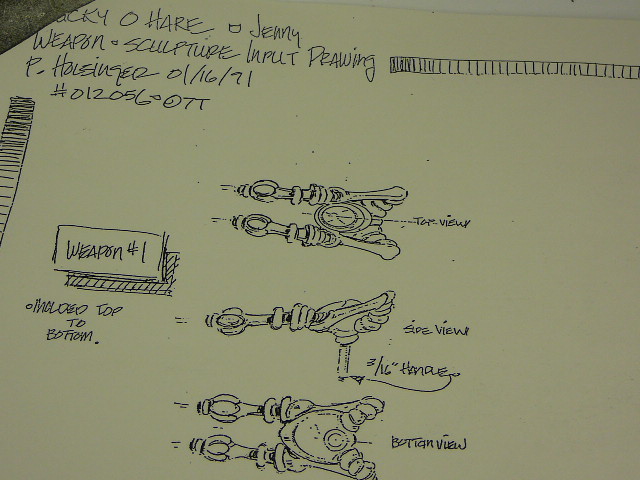 O HARE Jenny
WEAPON SCULPTURE INPUT DRAWING
P. HOLSINGER 01/16/91
WEAPON #1
TOP
TO
BOTTOM.
TOP VIEW
SIDE VIEW
3/16" HANDLE
BOTTOM VIEW